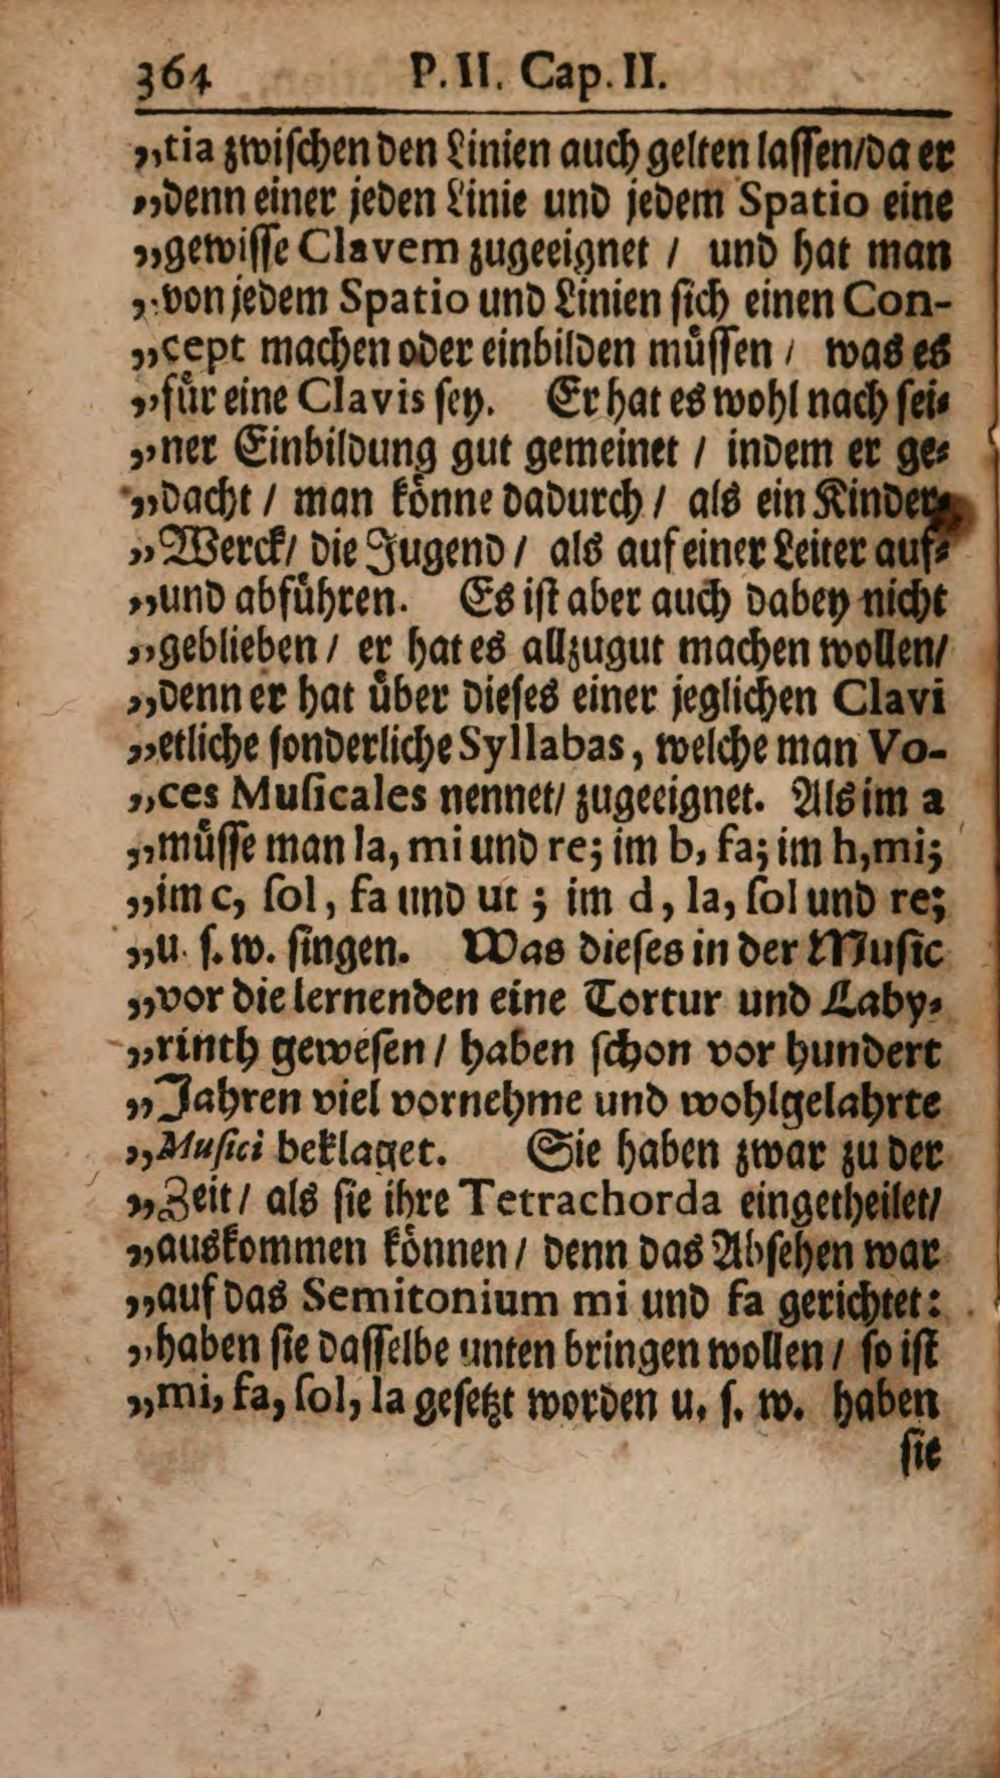 364 P. II. Cap. II.
„tia zwiſchen den Linien auch gelten laſſen/da er
„denn einer jeden Linie und jedem Spatio eine
„gewiſſe Clavem zugeeignet / und hat man
„von jedem Spatio und Linien ſich einen Con-
„cept machen oder einbilden muͤſſen / was es
„fuͤr eine Clavis ſey. Er hat es wohl nach ſei-
„ner Einbildung gut gemeinet / indem er ge-
„dacht / man koͤnne dadurch / als ein Kinder-
„Werck/ die Jugend / als auf einer Leiter auf-
„und abfuͤhren. Es iſt aber auch dabey nicht
„geblieben / er hat es allzugut machen wollen/
„denn er hat uͤber dieſes einer jeglichen Clavi
„etliche ſonderliche Syllabas, welche man Vo-
„ces Muſicales nennet/ zugeeignet. Als im a
„muͤſſe man la, mi und re; im b, fa; im h, mi;
„im c, ſol, fa und ut ; im d, la, ſol und re;
„u. ſ. w. ſingen. Was dieſes in der Muſic
„vor die lernenden eine Tortur und Laby-
„rinth geweſen / haben ſchon vor hundert
„Jahren viel vornehme und wohlgelahrte
„Muſici beklaget. Sie haben zwar zu der
„Zeit / als ſie ihre Tetrachorda eingetheilet/
„auskommen koͤnnen / denn das Abſehen war
„auf das Semitonium mi und fa gerichtet:
„haben ſie daſſelbe unten bringen wollen / ſo iſt
„mi, fa, ſol, la geſetzt worden u. ſ. w. haben
ſie